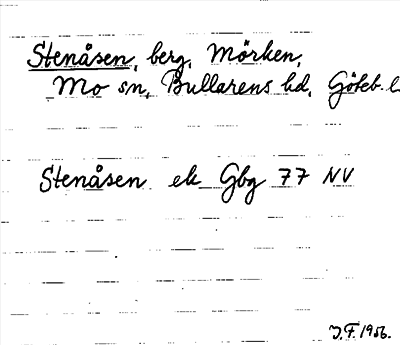 Stenåsen, berg, Mörken,
Mo sn, Bullarens hd, Göteb. l
Stenåsen ek Gbg 77 NV
J.F. 1956.